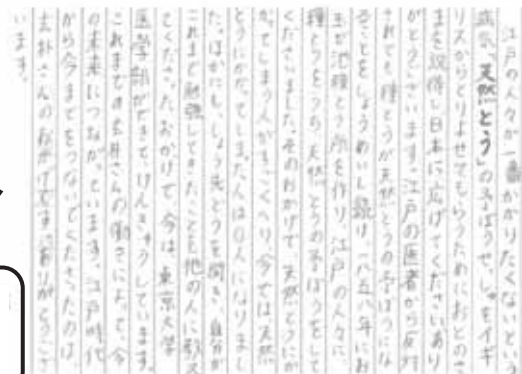 江戸の人々が一番かかりたくないという
病気「天然とう」の予ぼうせっしゅをイギ
リスからとりよせてもらうためにおとのさ
まを説得し日本に広げてくださいあり
がとうございます。江戸の医者から反対
されても、種とうが天然とうの予ぼうにな
ることをしょうめいし続け、一八五八年にお
玉が池種とう所を作り、江戸の人々に
種とうをうち、天然とうの予ぼうをして
くださいました。そのおかげで、天然とうにか
かってしまう人がものすごくへり、今では天然
とうにかかってしまった人は0人になりまし
た。ほかにも、しょう先どうを開き、自分が
これまで勉強してきたことを他の人に教え
てくださったおかげで、今は、東京大学
医学部ができて、けんきゅうしています。
これまでの玄朴さんの働きによって、今
の未来につながっています。江戸時代
から今までをつないでくださったのは、
玄朴さんのおかげです。ありがとうござ
います。